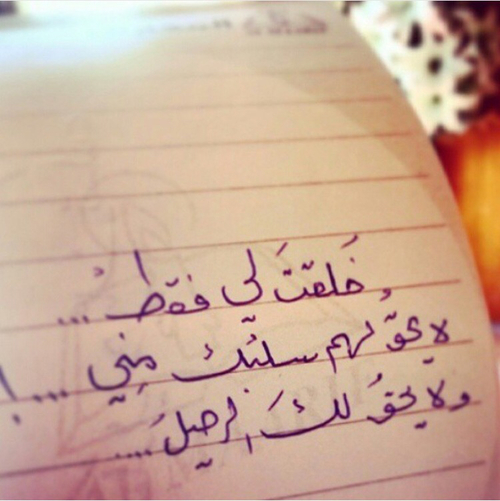 خُلقتَ لي فقط ...
لا يحقّ لهم سلبك مِني ... !
ولا يحقُ لكَ الرحيلَ ....